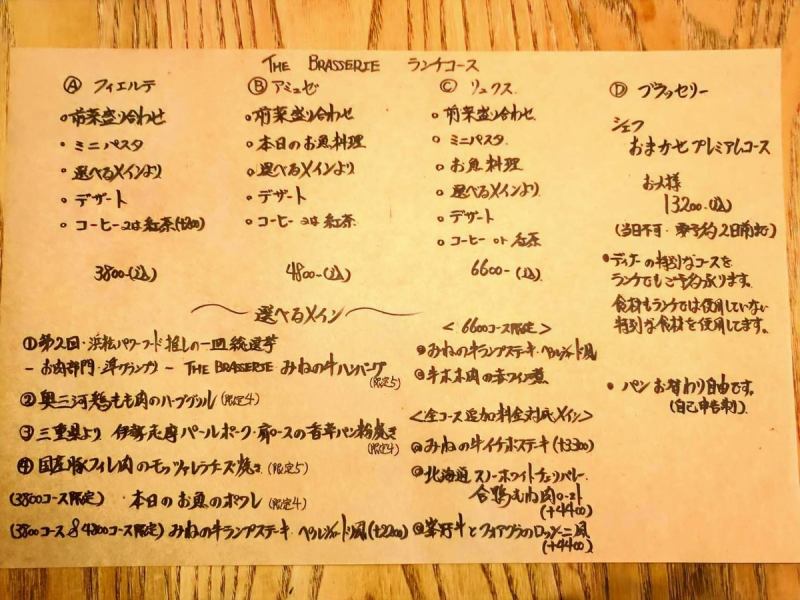 THE BRASSERIE ランチコース
Ⓐ フィエルテ
・前菜盛り合わせ
・ミニパスタ
・選べるメインより
・デザート
・コーヒー又は紅茶(+200)
3800-(込)
Ⓑ アミュゼ
・前菜盛り合わせ
・本日のお魚料理
・選べるメインより
・デザート
・コーヒー又は紅茶
4800-(込)
Ⓒ リュクス
・前菜盛り合わせ
・ミニパスタ
・お魚料理
・選べるメインより
・デザート
・コーヒー or 紅茶
6600-(込)
Ⓓ ブラッセリー
シェフ
おまかせプレミアムコース
お1人様
13200-(込)
(当日不可・要予約2日前まで)
・ディナーの特別なコースを
ランチでもご予約承ります。
食材もランチでは使用していない
特別な食材を使用してます。
・パンお替わり自由です。
(自己申告制)
〜選べるメイン〜
①第2回・浜松パワーフード推しの一皿総選挙
-お肉部門・準グランプリ- THE BRASSERIE みねの牛ハンバーグ
(限定5)
②奥三河鶏もも肉のハーブグリル(限定4)
③三重県より 伊勢志摩パールポーク・肩ロースの香草パン粉焼き
(限定4)
④国産豚フィレ肉のモッツァレラチーズ焼き(限定5)
(3800コース限定) 本日のお魚のポワレ(限定4)
(3800コース&4800コース限定) みねの牛ランプステーキ・ペリグルディーヌ風(+2200)
<6600コース限定>
みねの牛ランプステーキ・
牛ホホ肉の赤ワイン煮
<全コース追加料金対応メイン>
みねの牛イチボステーキ(+3300)
北海道 スノーホワイトチェリバレー
合鴨むね肉ロースト
(+4400)
峯野牛とフォアグラのロッシーニ風
(+4400)